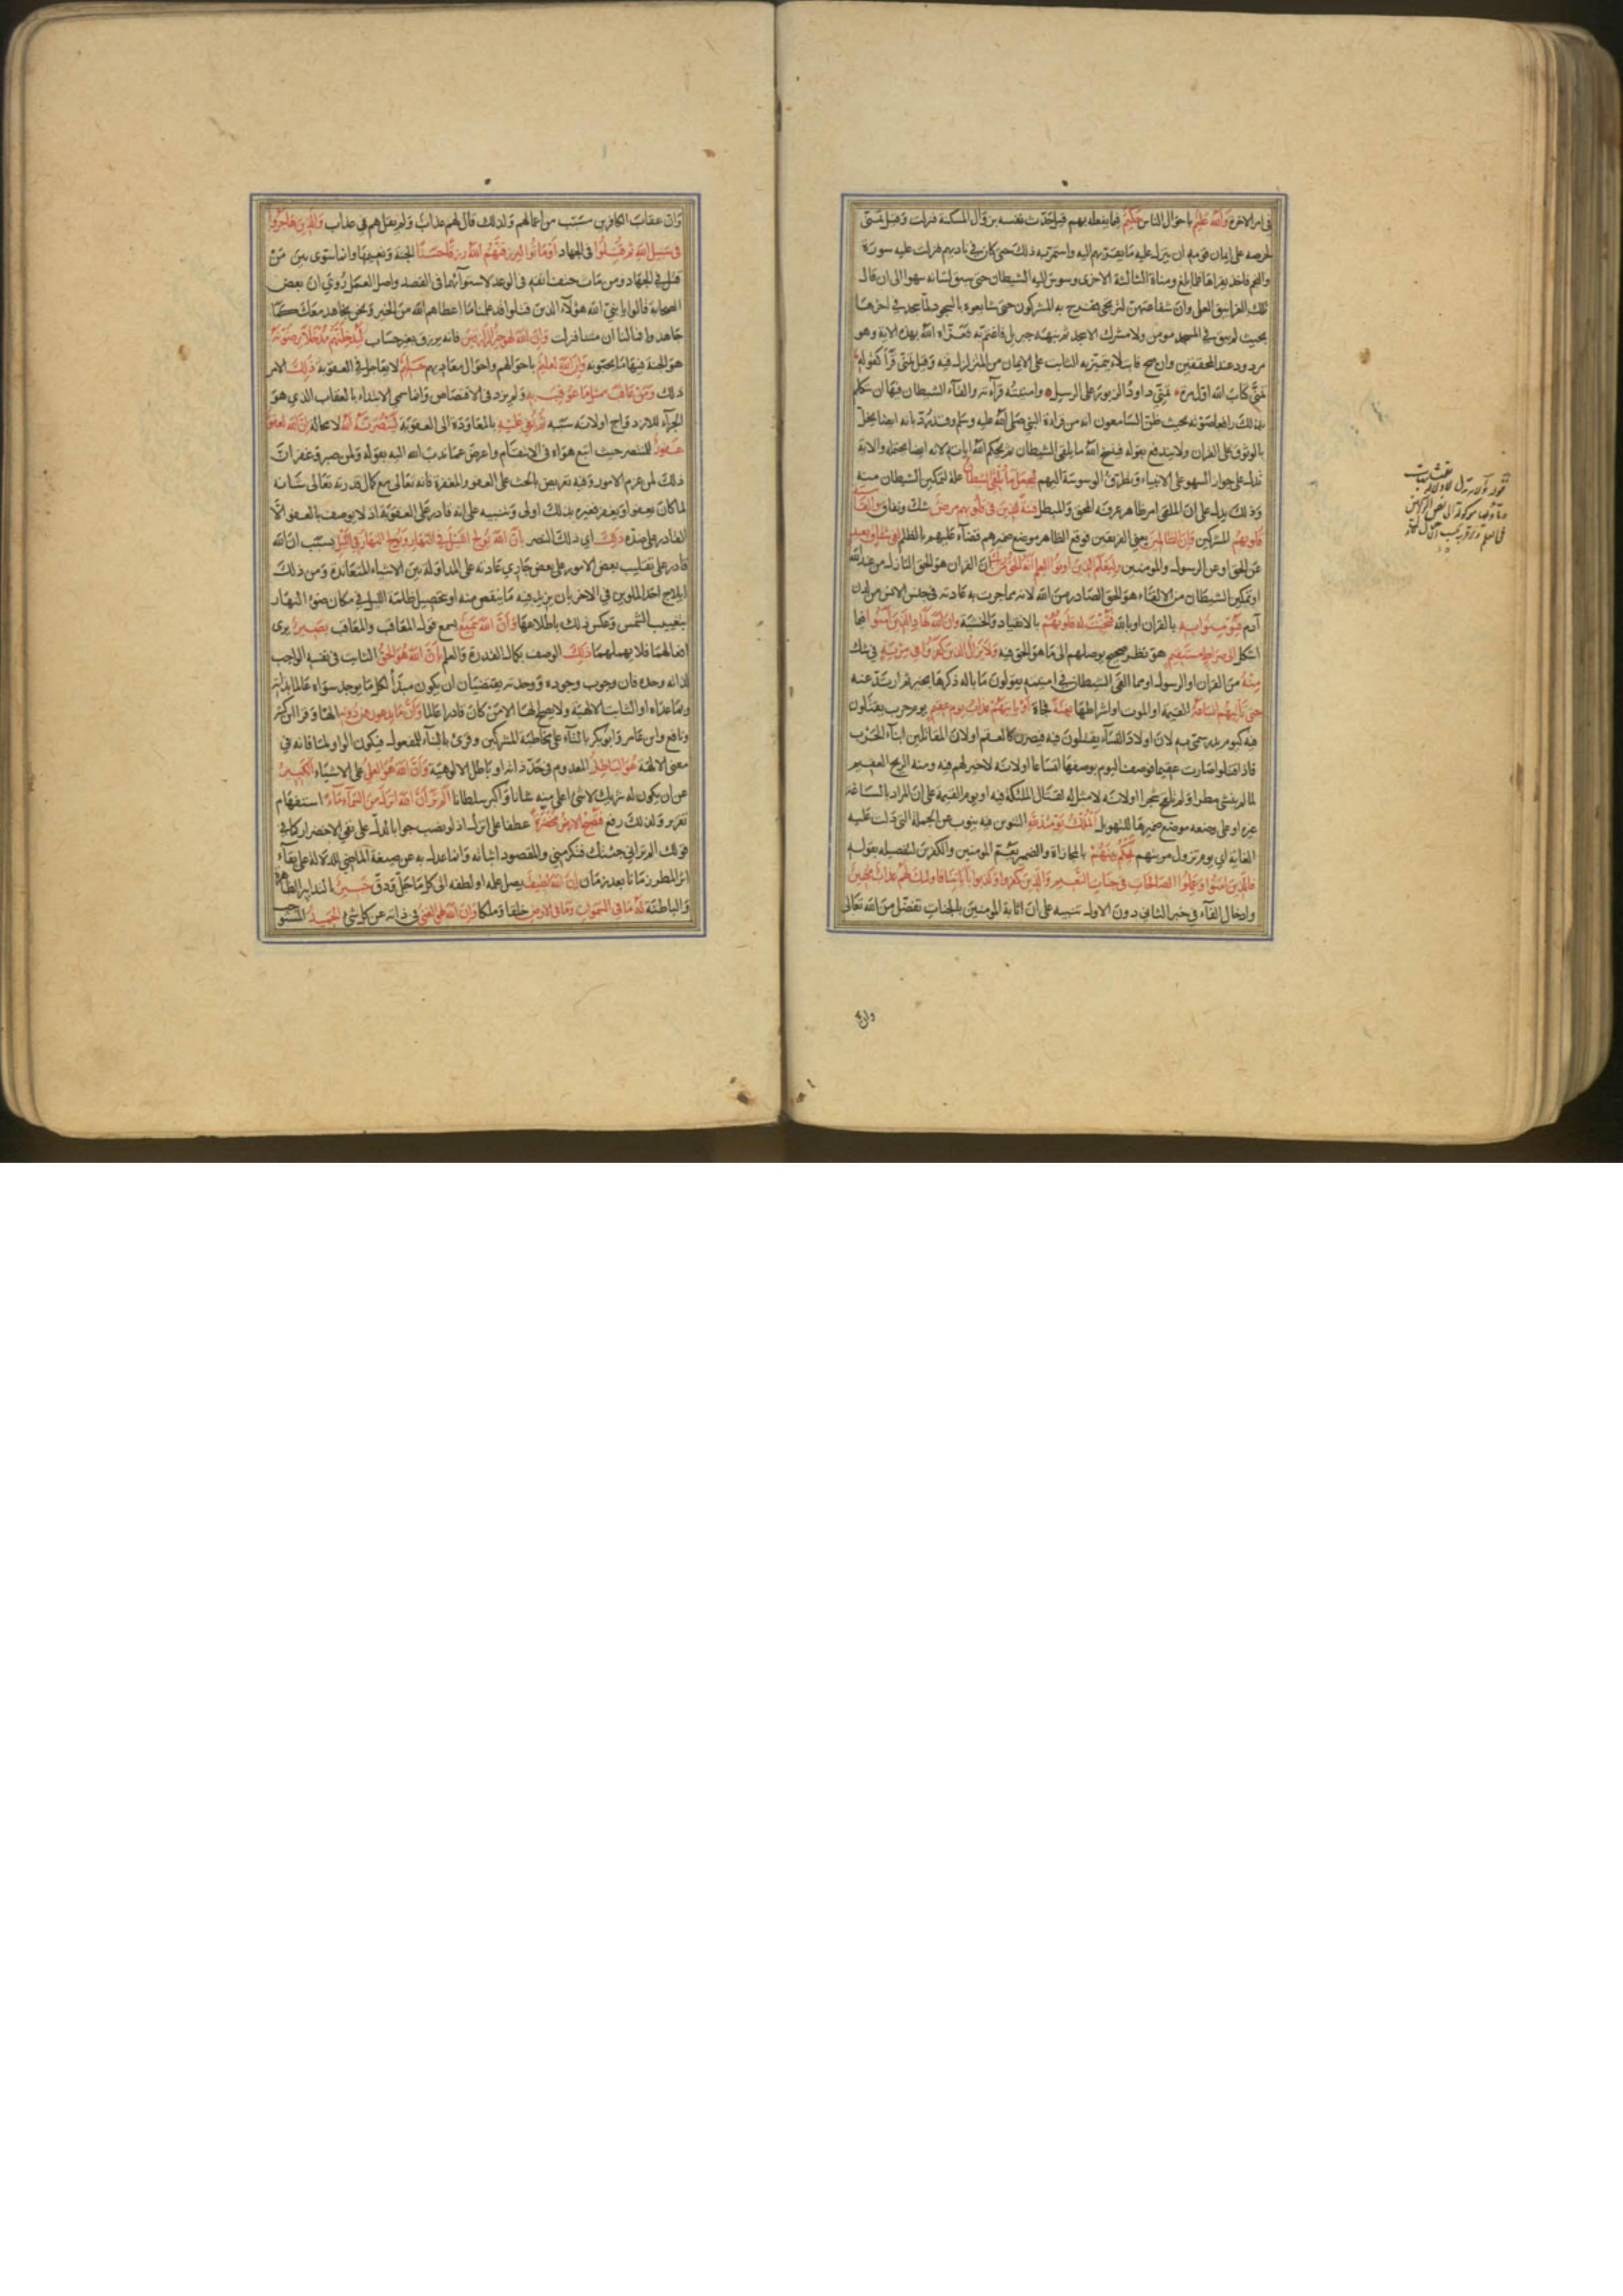 في امر الاخرة والله عليم باحوال الناس حكيم فيما يفعله بهم قيل حدث نفسه بزوال المسكنة فنزلت وقيل تمنى
لحرصه على ايمان قومه ان ينزل عليه ما يقربهم اليه واستمر به ذلك حتى كان في ناديهم فنزلت عليه سورة
والنجم فاخذ يقراها فلما بلغ ومناة الثالثة الاخرى وسوس اليه الشيطان حتى سبق لسانه سهوا الى ان قال
تلك الغرانيق العلى وان شفاعتهن لترتجى ففرح به المشركون حتى شايعوه بالسجود لما سجد في اخرها
بحيث لم يبق في المسجد مومن ولا مشرك الا سجد ثم نبهه جبريل فاغتم به فعزاه الله بهذه الاية وهو
مردود عند المحققين وان صح فابتلاء يتميز به الثابت على الايمان من المتزلزل فيه وقيل تمنى قرأ كقوله
تمنى كتاب الله اول مرة تمني داود الزبور على الرسل وامنيته قرآته والقاء الشيطان فيها ان تكلم
بذلك رافعا صوته بحيث ظن السامعون انه من قراءة النبي صلى الله عليه وسلم وقد رد بانه ايضا يخل
بالوثوق على القران ولا يندفع بقوله فينسخ الله ما يلقي الشيطان ثم يحكم الله اياته لانه ايضا يحتمله والاية
تدل على جواز السهو على الانبياء وتطرق الوسوسة اليهم ليجعل ما يلقي الشيطان علة لتمكين الشيطان منه
وذلك يدل على ان الملقى امر ظاهر عرفه المحق والمبطل فتنة للذين في قلوبهم مرض شك ونفاق والقاسية
قلوبهم المشركين وان الظالمين يعني الفريقين فوضع الظاهر موضع ضميرهم قضآء عليهم بالظلم لفي شقاق بعيد
عن الحق او عن الرسول والمومنين وليعلم الذين اوتوا العلم انه الحق من ربك ان القران هو الحق النازل من عند الله
او تمكين الشيطان من الالقاء هو الحق الصادر من الله لانه مما جرت به عادته في جنس الانس من لدن
آدم فيومنوا به بالقران او بالله فتخبت له قلوبهم بالانقياد والخشية وان الله لهاد الذين آمنوا فيما
اشكل الى صراط مستقيم هو نظر صحيح يوصلهم الى ما هو الحق فيه ولا يزال الذين كفروا في مرية في شك
منه من القران او الرسول او مما القى الشيطان في امنيته يقولون ما باله ذكرها بخير ثم ارتد عنه
حتى تأتيهم الساعة القيمة او الموت او اشراطها بغتة فجاة او ياتيهم عذاب يوم عقيم يوم حرب يقتلون
فيه كيوم بدر سمى به لان اولاد النسآء يقتلون فيه فيصرن كالعقم او لان المقاتلين ابنآء الحرب
فاذا قتلوا صارت عقيما فوصف اليوم بوصفها اتساعا او لانه لا خير لهم فيه ومنه الريح العقيم
لما لم ينشئ مطرا ولم تلقح شجرا او لانه لا مثل له لقتال الملئكة فيه او يوم القيمة على ان المراد بالساعة
غيره او على وضعه موضع ضميرها للتهويل الملك يومئذ لله التنوين فيه ينوب عن الجملة التي دلت عليه
الغاية اي يوم تزول مريتهم يحكم بينهم بالمجازاة والضمير يعم المومنين والكفرين لتفصيله بقوله
فالذين امنوا وعملوا الصالحات في جنات النعيم والذين كفروا وكذبوا باياتنا فاولئك لهم عذاب مهين
وادخال الفآء في خبر الثاني دون الاول تنبيه على ان اثابة المومنين بالجنات تفضل من الله تعالى
وان عقاب الكافرين مسبب من اعمالهم ولذلك قال لهم عذاب ولم يقل هم في عذاب والذين هاجروا
في سبيل الله ثم قتلوا في الجهاد او ماتوا ليرزقنهم الله رزقا حسنا الجنة ونعيمها وانما سوى بين من
قتل في الجهاد ومن مات حتف انفه في الوعد لاستوآئهما في القصد واصل العمل روي ان بعض
الصحابة قالوا يا نبي الله هؤلآء الذين قتلوا قد علمنا ما اعطاهم الله من الخير ونحن نجاهد معك كما
جاهدوا فما لنا ان متنا فنزلت وان الله لهو خير الرازقين فانه يرزق بغير حساب ليدخلنهم مدخلا يرضونه
هو الجنة فيها ما يحبونه وان الله لعليم باحوالهم واحوال معاديهم حليم لا يعاجل في العقوبة ذلك الامر
ذلك ومن عاقب بمثل ما عوقب به ولم يزد في الاقتصاص وانما سمى الابتداء بالعقاب الذي هو
الجزآء للازدواج او لانه سببه ثم بغي عليه بالمعاودة الى العقوبة لينصرنه الله لا محالة ان الله لعفو
غفور للمنتصر حيث اتبع هواه في الانتقام واعرض عما ندب الله اليه بقوله ولمن صبر وغفر ان
ذلك لمن عزم الامور وفيه تعريض بالحث على العفو والمغفرة فانه تعالى مع كمال قدرته تعالى شانه
لما كان يعفو ويغفر فغيره بذلك اولى وتنبيه على انه قادر على العقوبة اذ لا يوصف بالعفو الا
القادر على ضده ذلك اي ذلك النصر بان الله يولج الليل في النهار ويولج النهار في الليل بسبب ان الله
قادر على تغليب بعض الامور على بعض جاري عادته على المداولة بين الاشياء المتعاندة ومن ذلك
ايلاج احد الملوين في الاخر بان يزيد فيه ما ينقص منه او تحصيل ظلمة الليل في مكان ضوء النهار
بتغييب الشمس وعكس ذلك باطلاعها وان الله سميع يسمع قول المعاقب والمعاقب بصير يرى
افعالهما فلا يهملهما ذلك الوصف بكمال القدرة والعلم بان الله هو الحق الثابت في نفسه الواجب
لذاته وحده فان وجوب وجوده ووحدته يقتضيان ان يكون مبدأ لكل ما يوجد سواه عالما بذاته
وبما عداه او الثابت الالهية ولا يصلح لها الا من كان قادرا عالما وان ما يدعون من دونه الها وقرا ابن كثير
ونافع وابن عامر وابو بكر بالتآء على مخاطبة المشركين وقرئ بالبنآء للمفعول فيكون الواو لما فانه في
معنى الالهة هو الباطل المعدوم في حد ذاته او باطل الالوهية وان الله هو العلي على الاشياء الكبير
عن ان يكون له شريك لا شئ اعلى منه شانا واكبر سلطانا الم تر ان الله انزل من السمآء مآء استفهام
تقرير ولذلك رفع فتصبح الارض مخضرة عطفا على انزل اذ لو نصب جوابا لدل على نفي الاخضرار كما في
قولك الم تر اني جئتك فتكرمني والمقصود اثباته وانما عدل به عن صيغة الماضي للدلالة على بقآء
اثر المطر زمانا بعد زمان ان الله لطيف يصل علمه او لطفه الى كل ما جل ودق خبير بالتدابير الظاهرة
والباطنة له ما في السموات وما في الارض خلقا وملكا وان الله لهو الغني في ذاته عن كل شئ الحميد المستوجب